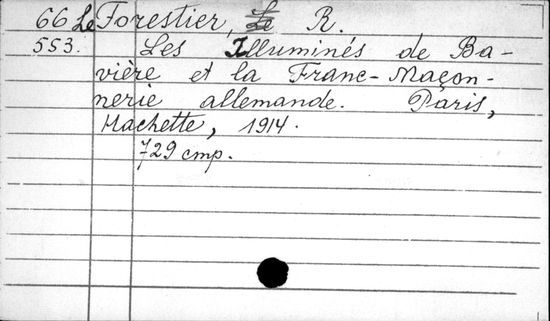 66 Le Forestier, Le R.
553. Les Illuminés de Ba-
vière et la Franc-Maçon-
nerie allemande. Paris,
Hachette, 1914.
729 cmp.